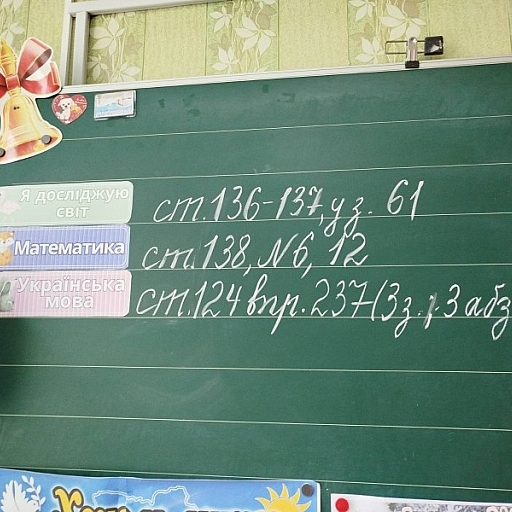 Я досліджую світ ст. 136-137, уз. 61
Математика ст. 138, №6, 12
Українська мова ст. 124 впр. 237 (3 абз